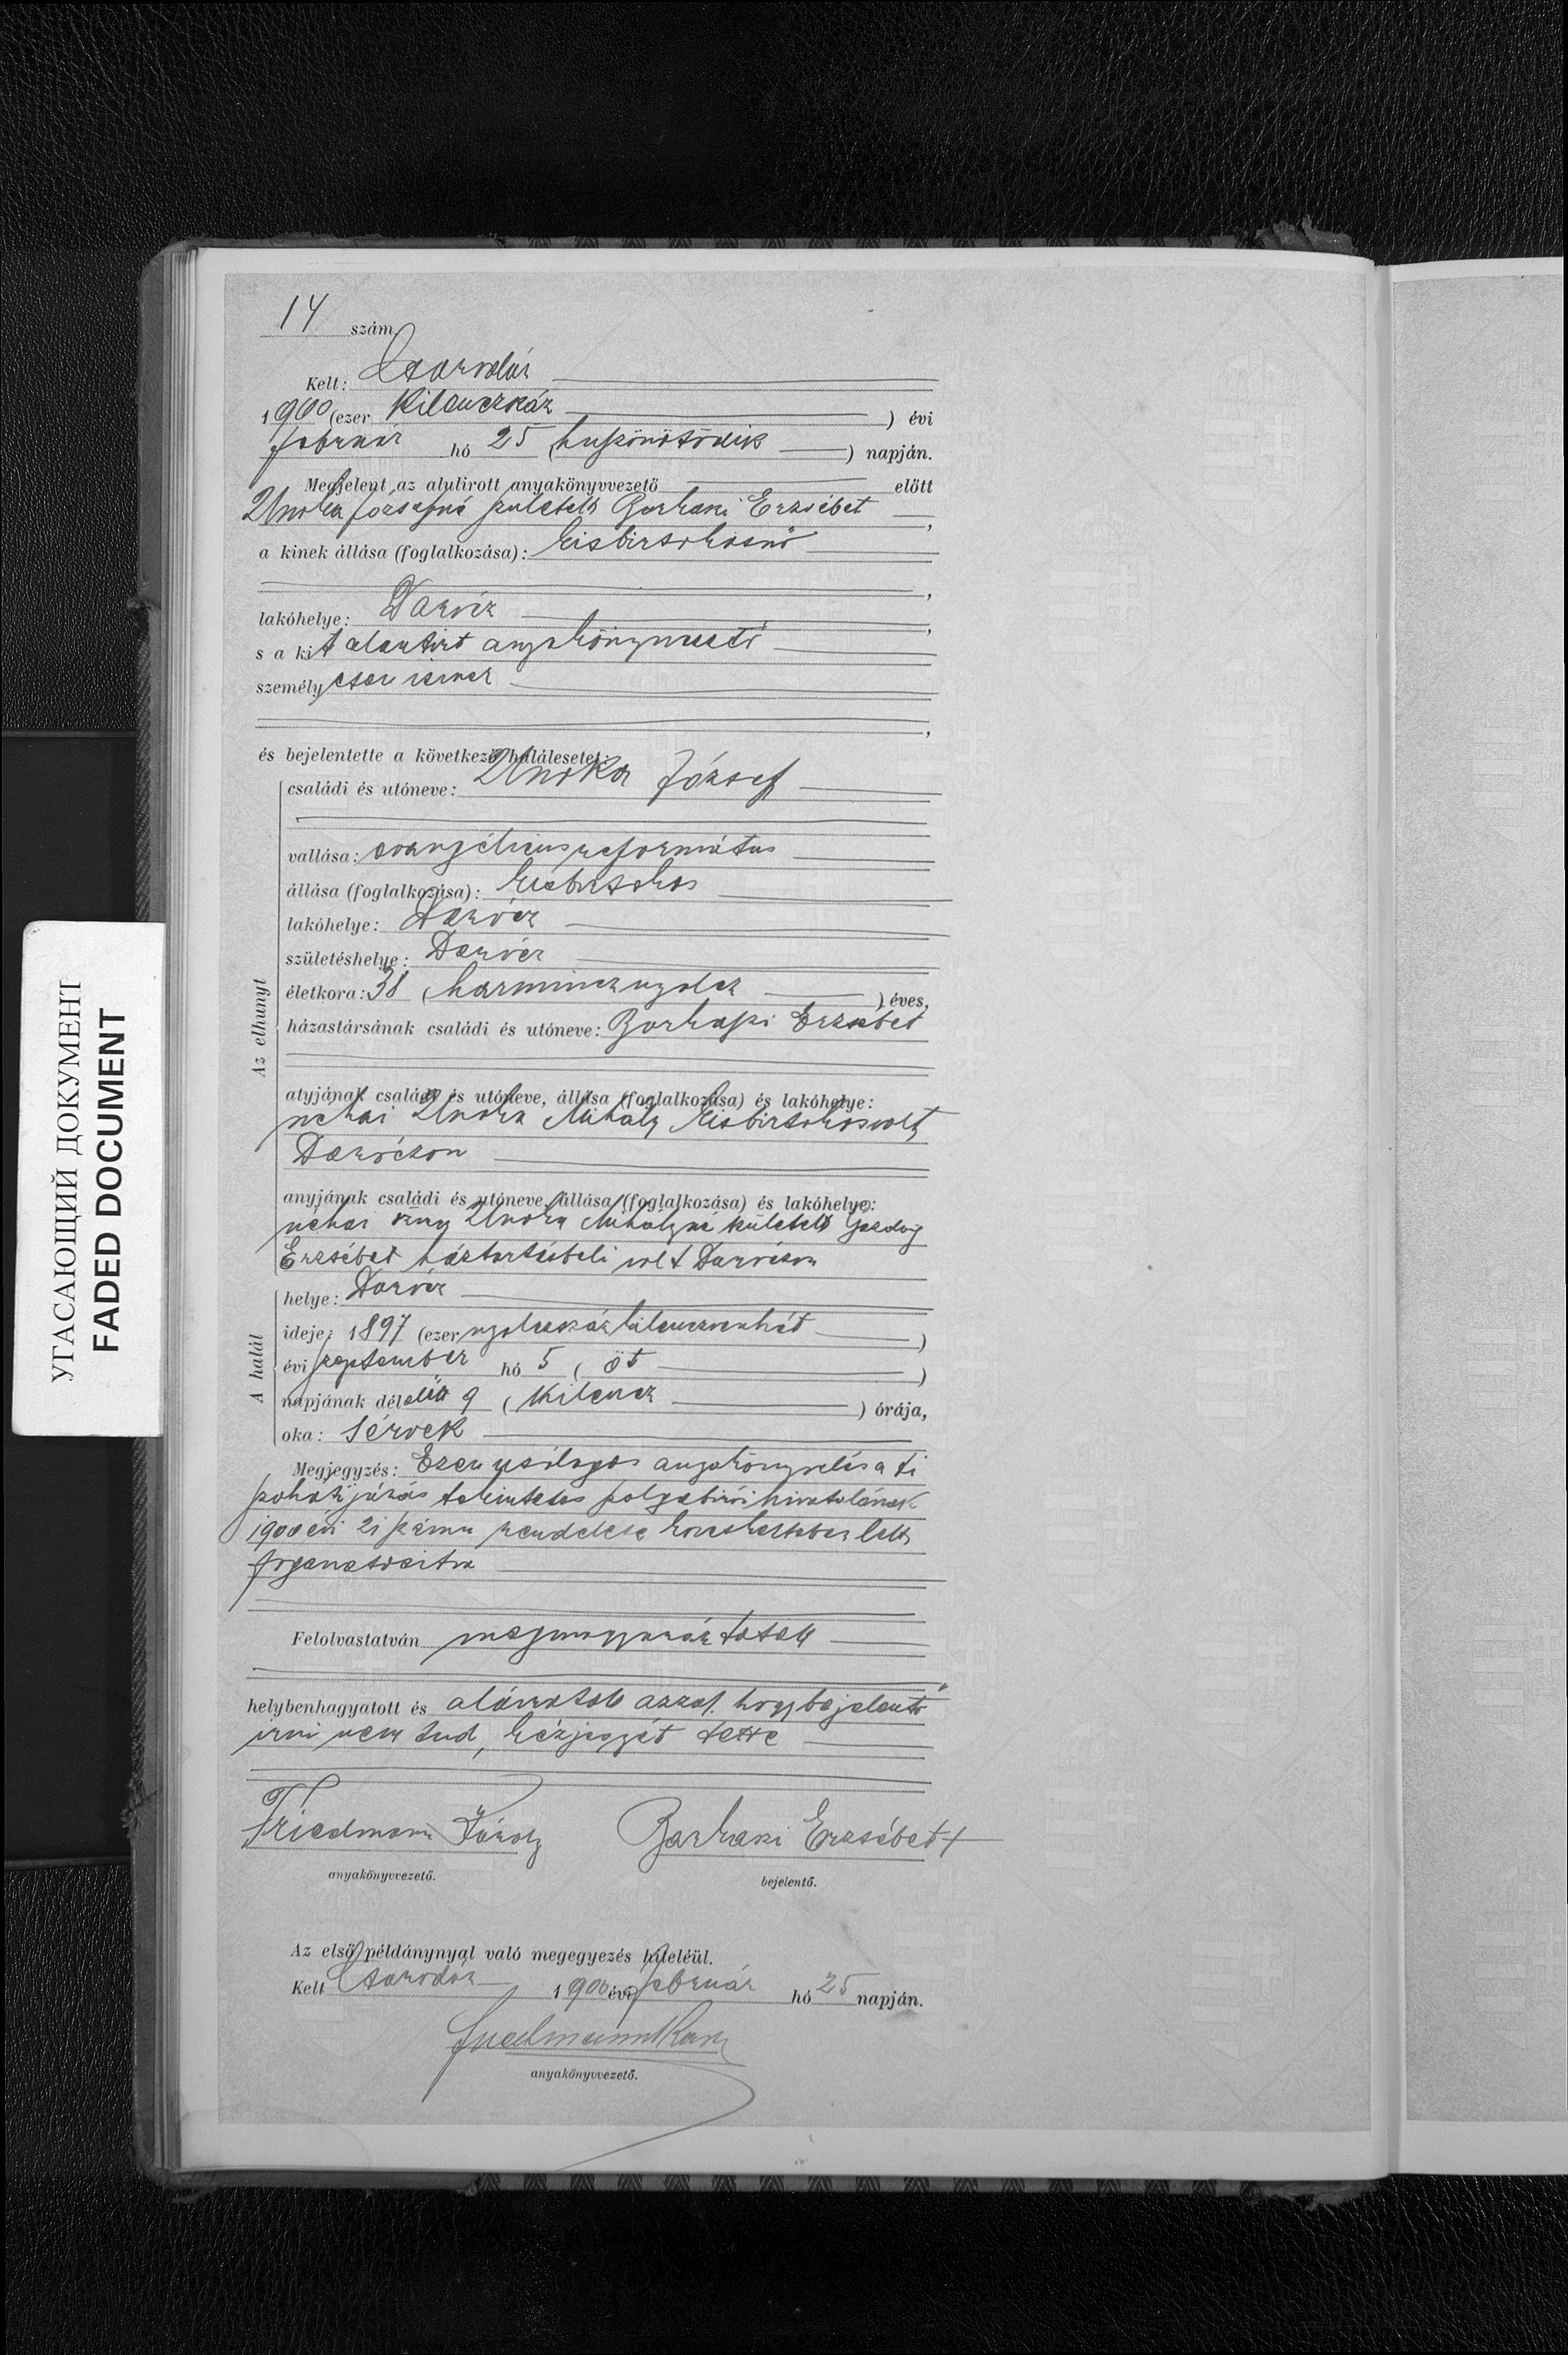 14 szám.
Kelt: Csarodán
1900 (ezer kilenczszáz ) évi
február hó 25 (huszonötödik ) napján.
Megjelent az alulirott anyakönyvvezető előtt
Unoka Józsefné született Barkaszi Erzsébet ,
a kinek állása (foglalkozása): kisbirtokosnő
,
lakóhelye: Darócz ,
s a kit alantirt anyakönyvvezető
személyesen ismer
,
és bejelentette a következő halálesetet:
Az elhunyt
családi és utóneve: Unoka József
vallása: evangélicus református
állása (foglalkozása): kisbirtokos
lakóhelye: Darócz
születéshelye: Darócz
életkora: 38 (harmincznyolcz ) éves,
házastársának családi és utóneve: Barkaszi Erzsébet
atyjának családi és utóneve, állása (foglalkozása) és lakóhelye:
néhai Unoka Mihály kisbirtokos volt
Daróczon
anyjának családi és utóneve, állása (foglalkozása) és lakóhelye:
néhai Unoka Mihályné született
Erzsébet háztartásbeli volt Daróczon
A halál
helye: Darócz
ideje: 1897 (ezer nyolczszázkilenczvenhét )
évi szeptember hó 5 ( öt )
napjának délelőtt 9 ( kilencz ) órája,
oka: sérvek
Megjegyzés: Ezen utólagos anyakönyvelés a ti
szaháti járás tekintetes szolgabirói hivatalának
1900 évi 21 számu rendelete következtében lett
foganatositva
Felolvastatván megmagyaráztatott
helybenhagyatott és aláiratott azzal, hogy bejelentő
irni nem tud, kézjegyét tette
Friedmann Károly Barkaszi Erzsébet +
anyakönyvvezető. bejelentő.
Az első példánynyal való megegyezés hiteléül.
Kelt Csarodán 1900 évi február hó 25 napján.
Friedmann Károly
anyakönyvvezető.
УГАСАЮЩИЙ ДОКУМЕНТ
FADED DOCUMENT